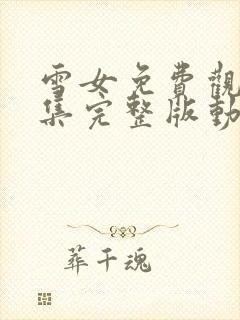 雪女免費觀
集完整版動
葬千魂